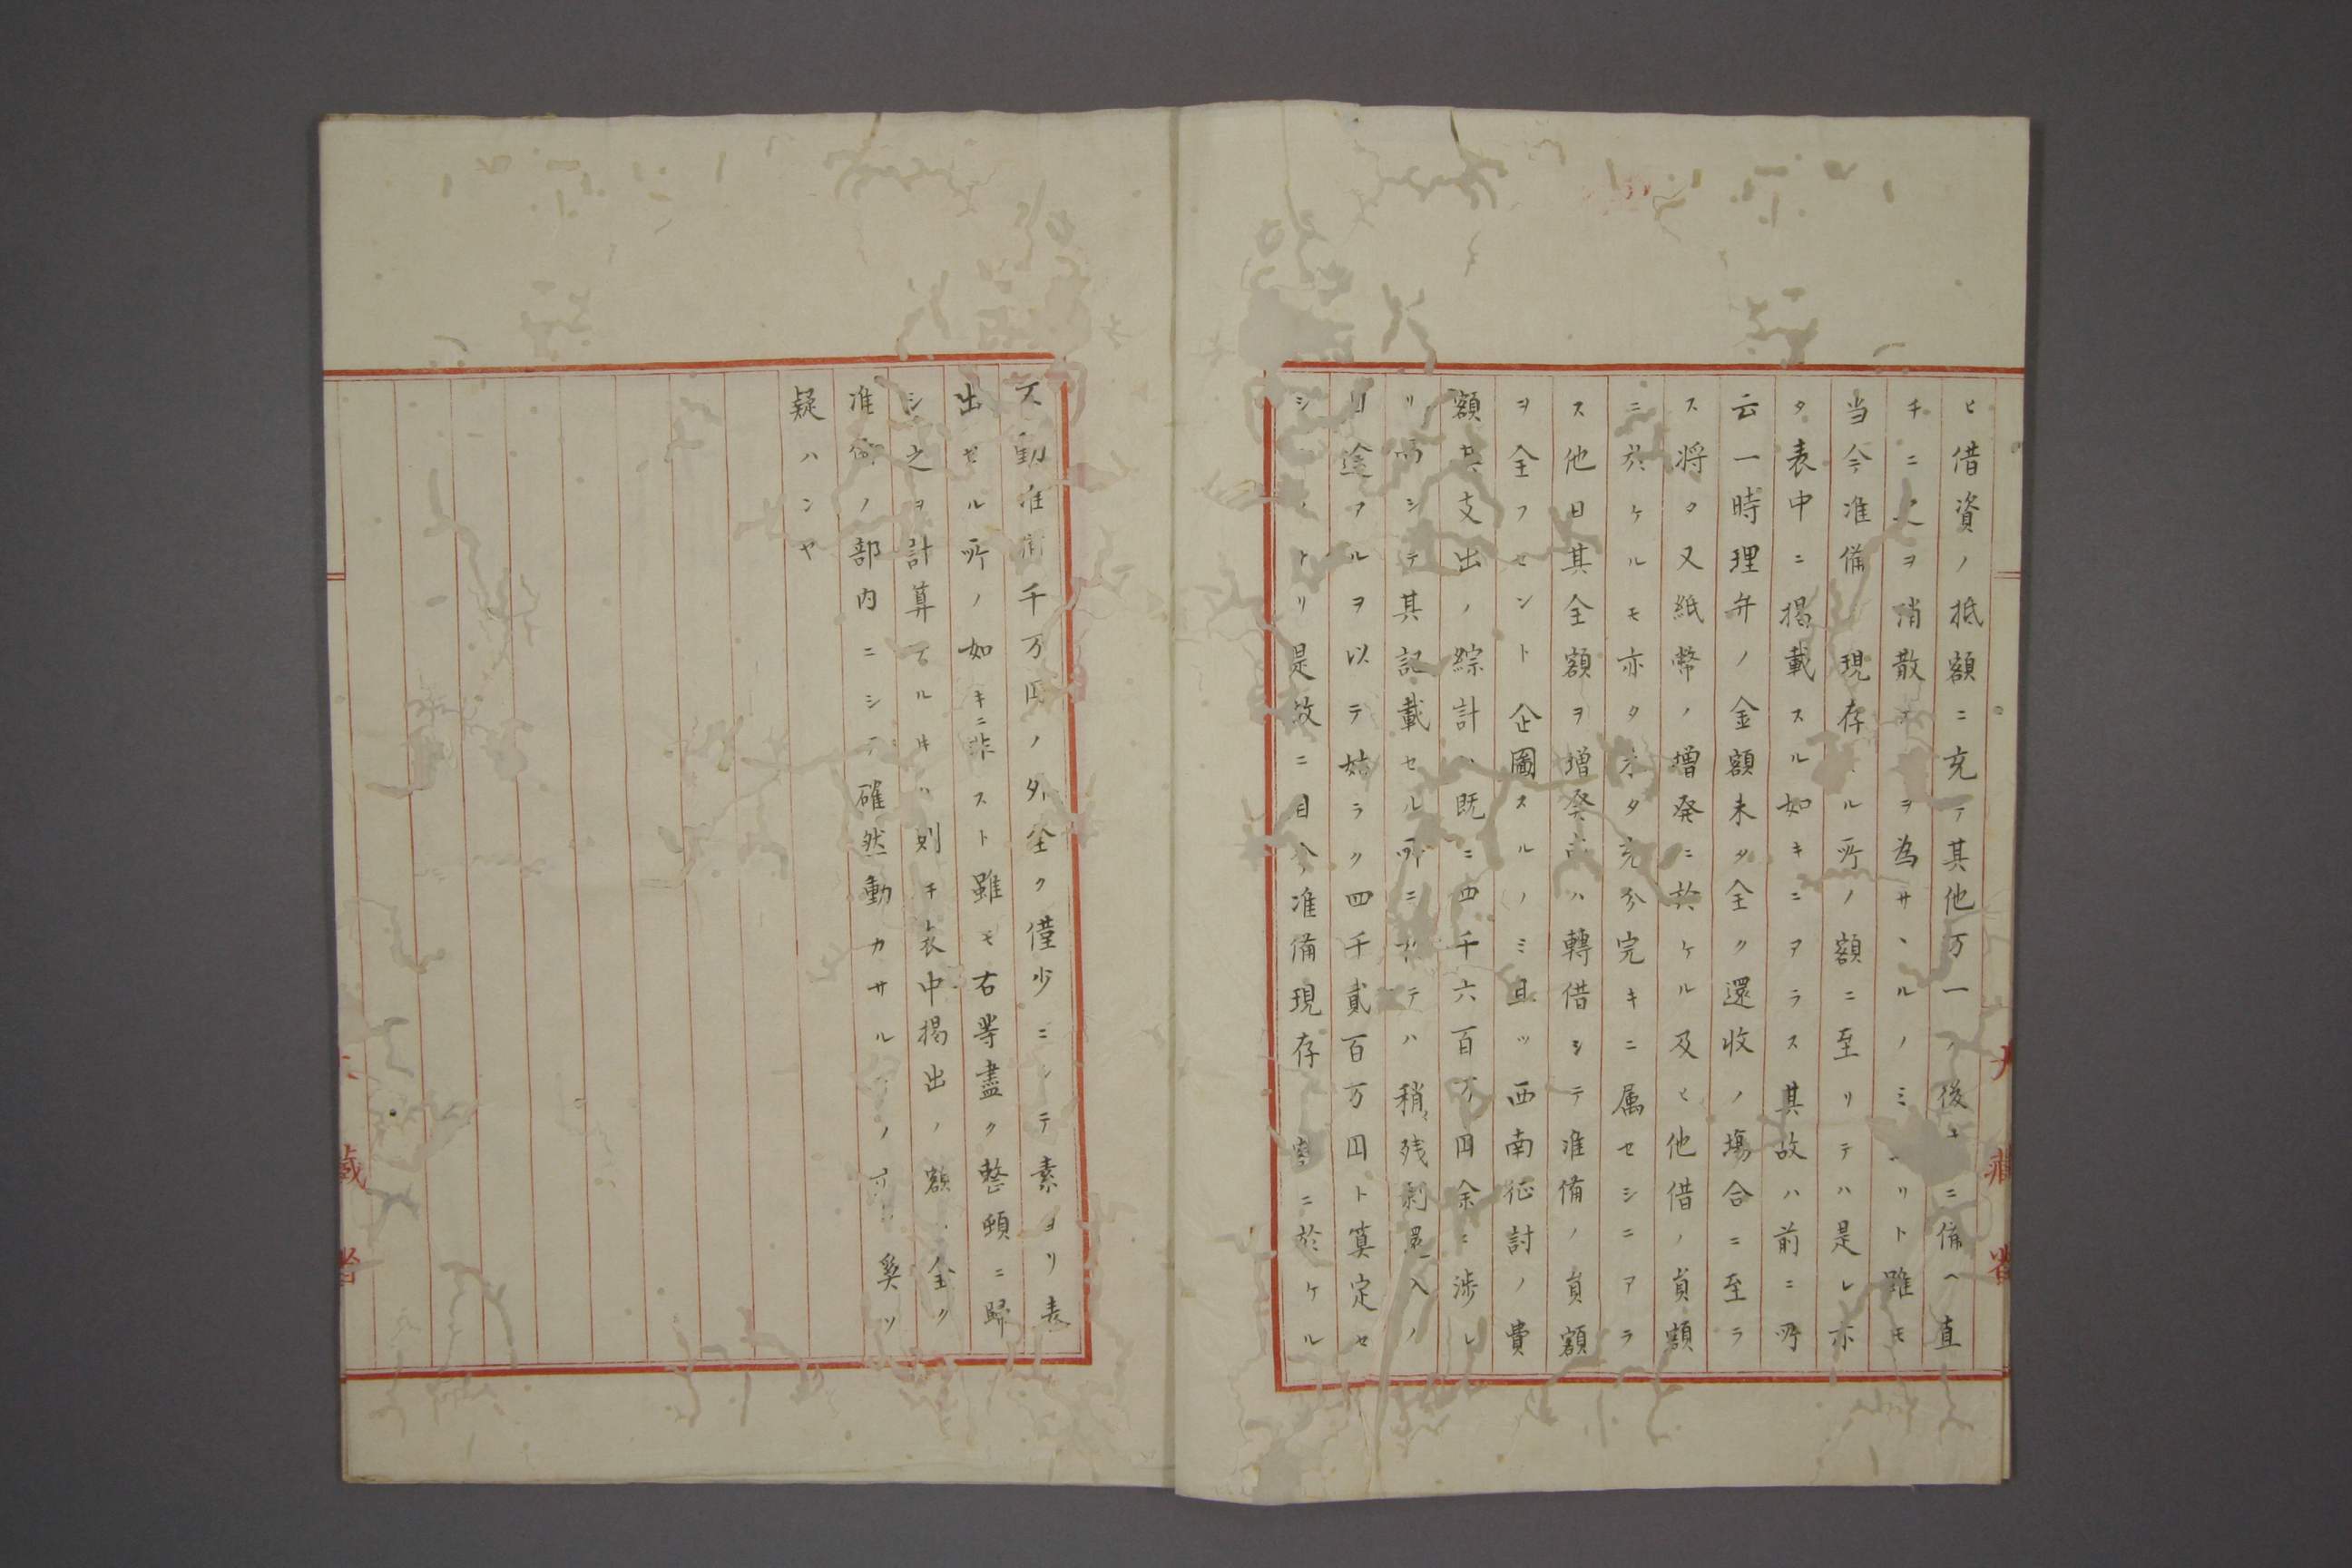 ヒ借資ノ抵額ニ充テ其他万一ノ後ニ備ヘ直
チニ之ヲ消散ヲ為サヽルノミリト雖モ
当今准備現存ル所ノ額ニ至リテハ是レ亦
タ表中ニ掲載スル如キニアラス其故ハ前ニ所
云一時理弁ノ金額未タ全ク還收ノ場合ニ至ラ
ス将タ又紙幣ノ増発ニ於ケル及ヒ他借ノ員額
ニ於ケルモ亦タ未タ充分完キニ属セシニアラ
ス他日其全額ヲ増発シ或ハ轉借シテ准備ノ員額
ヲ全フセント企圖スルノミ且ツ西南征討ノ費
額其支出ノ綜計ハ既ニ四千六百万円余ニ渉レ
リ而シテ其記載セル所ニ於テハ稍々残剰還入ノ
目途アルヲ以テ姑ラク四千貳百万円ト算定セ
シノリ是故ニ目今准備現存ノ実ニ於ケル
ス動准備千万円ノ外全ク僅少ニシテ素ヨリ表
出セル所ノ如キニ非スト雖モ右等盡ク整頓ニ歸
シ之ヲ計算スルトキハ則チ表中掲出ノ額ハ全ク
准備ノ部内ニシテ確然動カサルノ奚ソ
疑ハンヤ
大藏省
大藏省